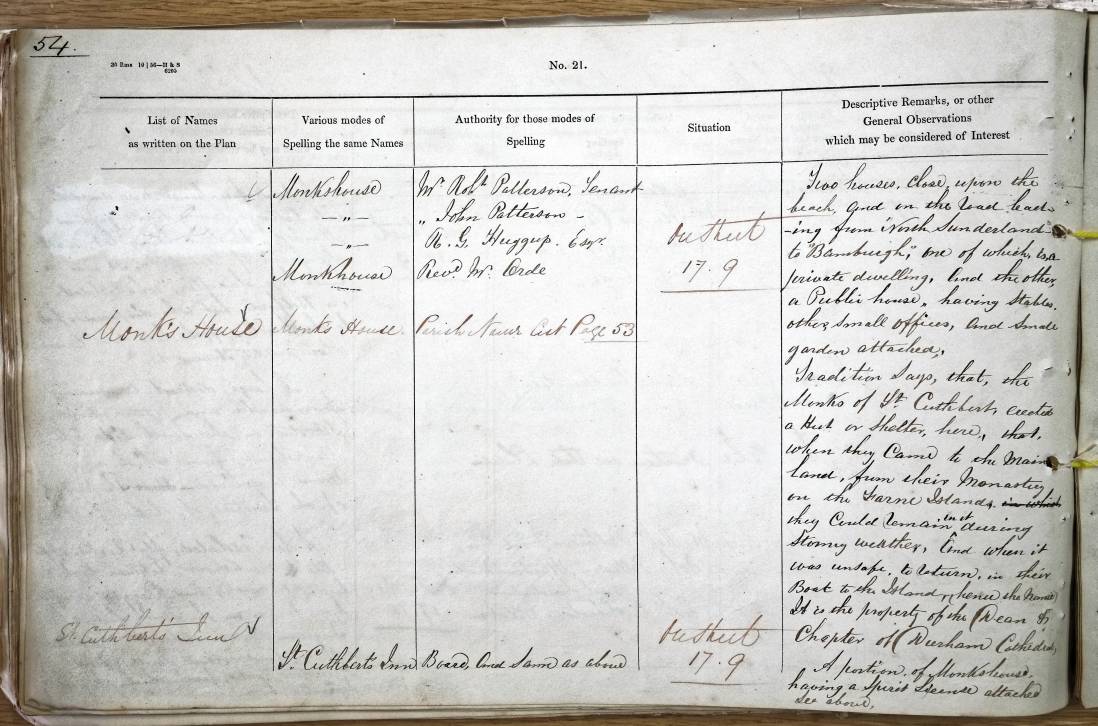 54.
20 Rms 10 | 56—H & S
6205
No. 21.
List of Names
as written on the Plan
Various modes of
Spelling the same Names
Authority for those modes of
Spelling
Situation
Descriptive Remarks, or other
General Observations
which may be considered of Interest
Monkshouse
Mr Robt Patterson, Tenant
— „ —
„ John Patterson -
— „ —
R. G. Huggup. Esqr.
Monkhouse
Revd. Mr. Orde
On Sheet
17.9
Monk's House
Monks House.
Parish Name List Page 53
Two houses, close, upon the
beach, and on the road lead-
-ing from "North Sunderland"
to "Bamburgh", one of which, is, a
private dwelling, and the other,
a Public house, having stables,
other small offices, and small
garden attached,
Tradition says, that, the
Monks of St. Cuthbert, erected
a Hut or Shelter, here, that,
when they came to the Main
land, from their Monastery
on the Farne Islands, in which
they could remain in it during
stormy weather, and when it
was unsafe, to return, in their
Boat to the Island, (hence the Name)
It is the property of the Dean &
Chapter of Durham Cathedral,
St. Cuthbert's Inn
St. Cuthberts Inn
Board, and same as above
On Sheet
17.9
A portion, of Monkshouse,
having a Spirit License attached
see above,